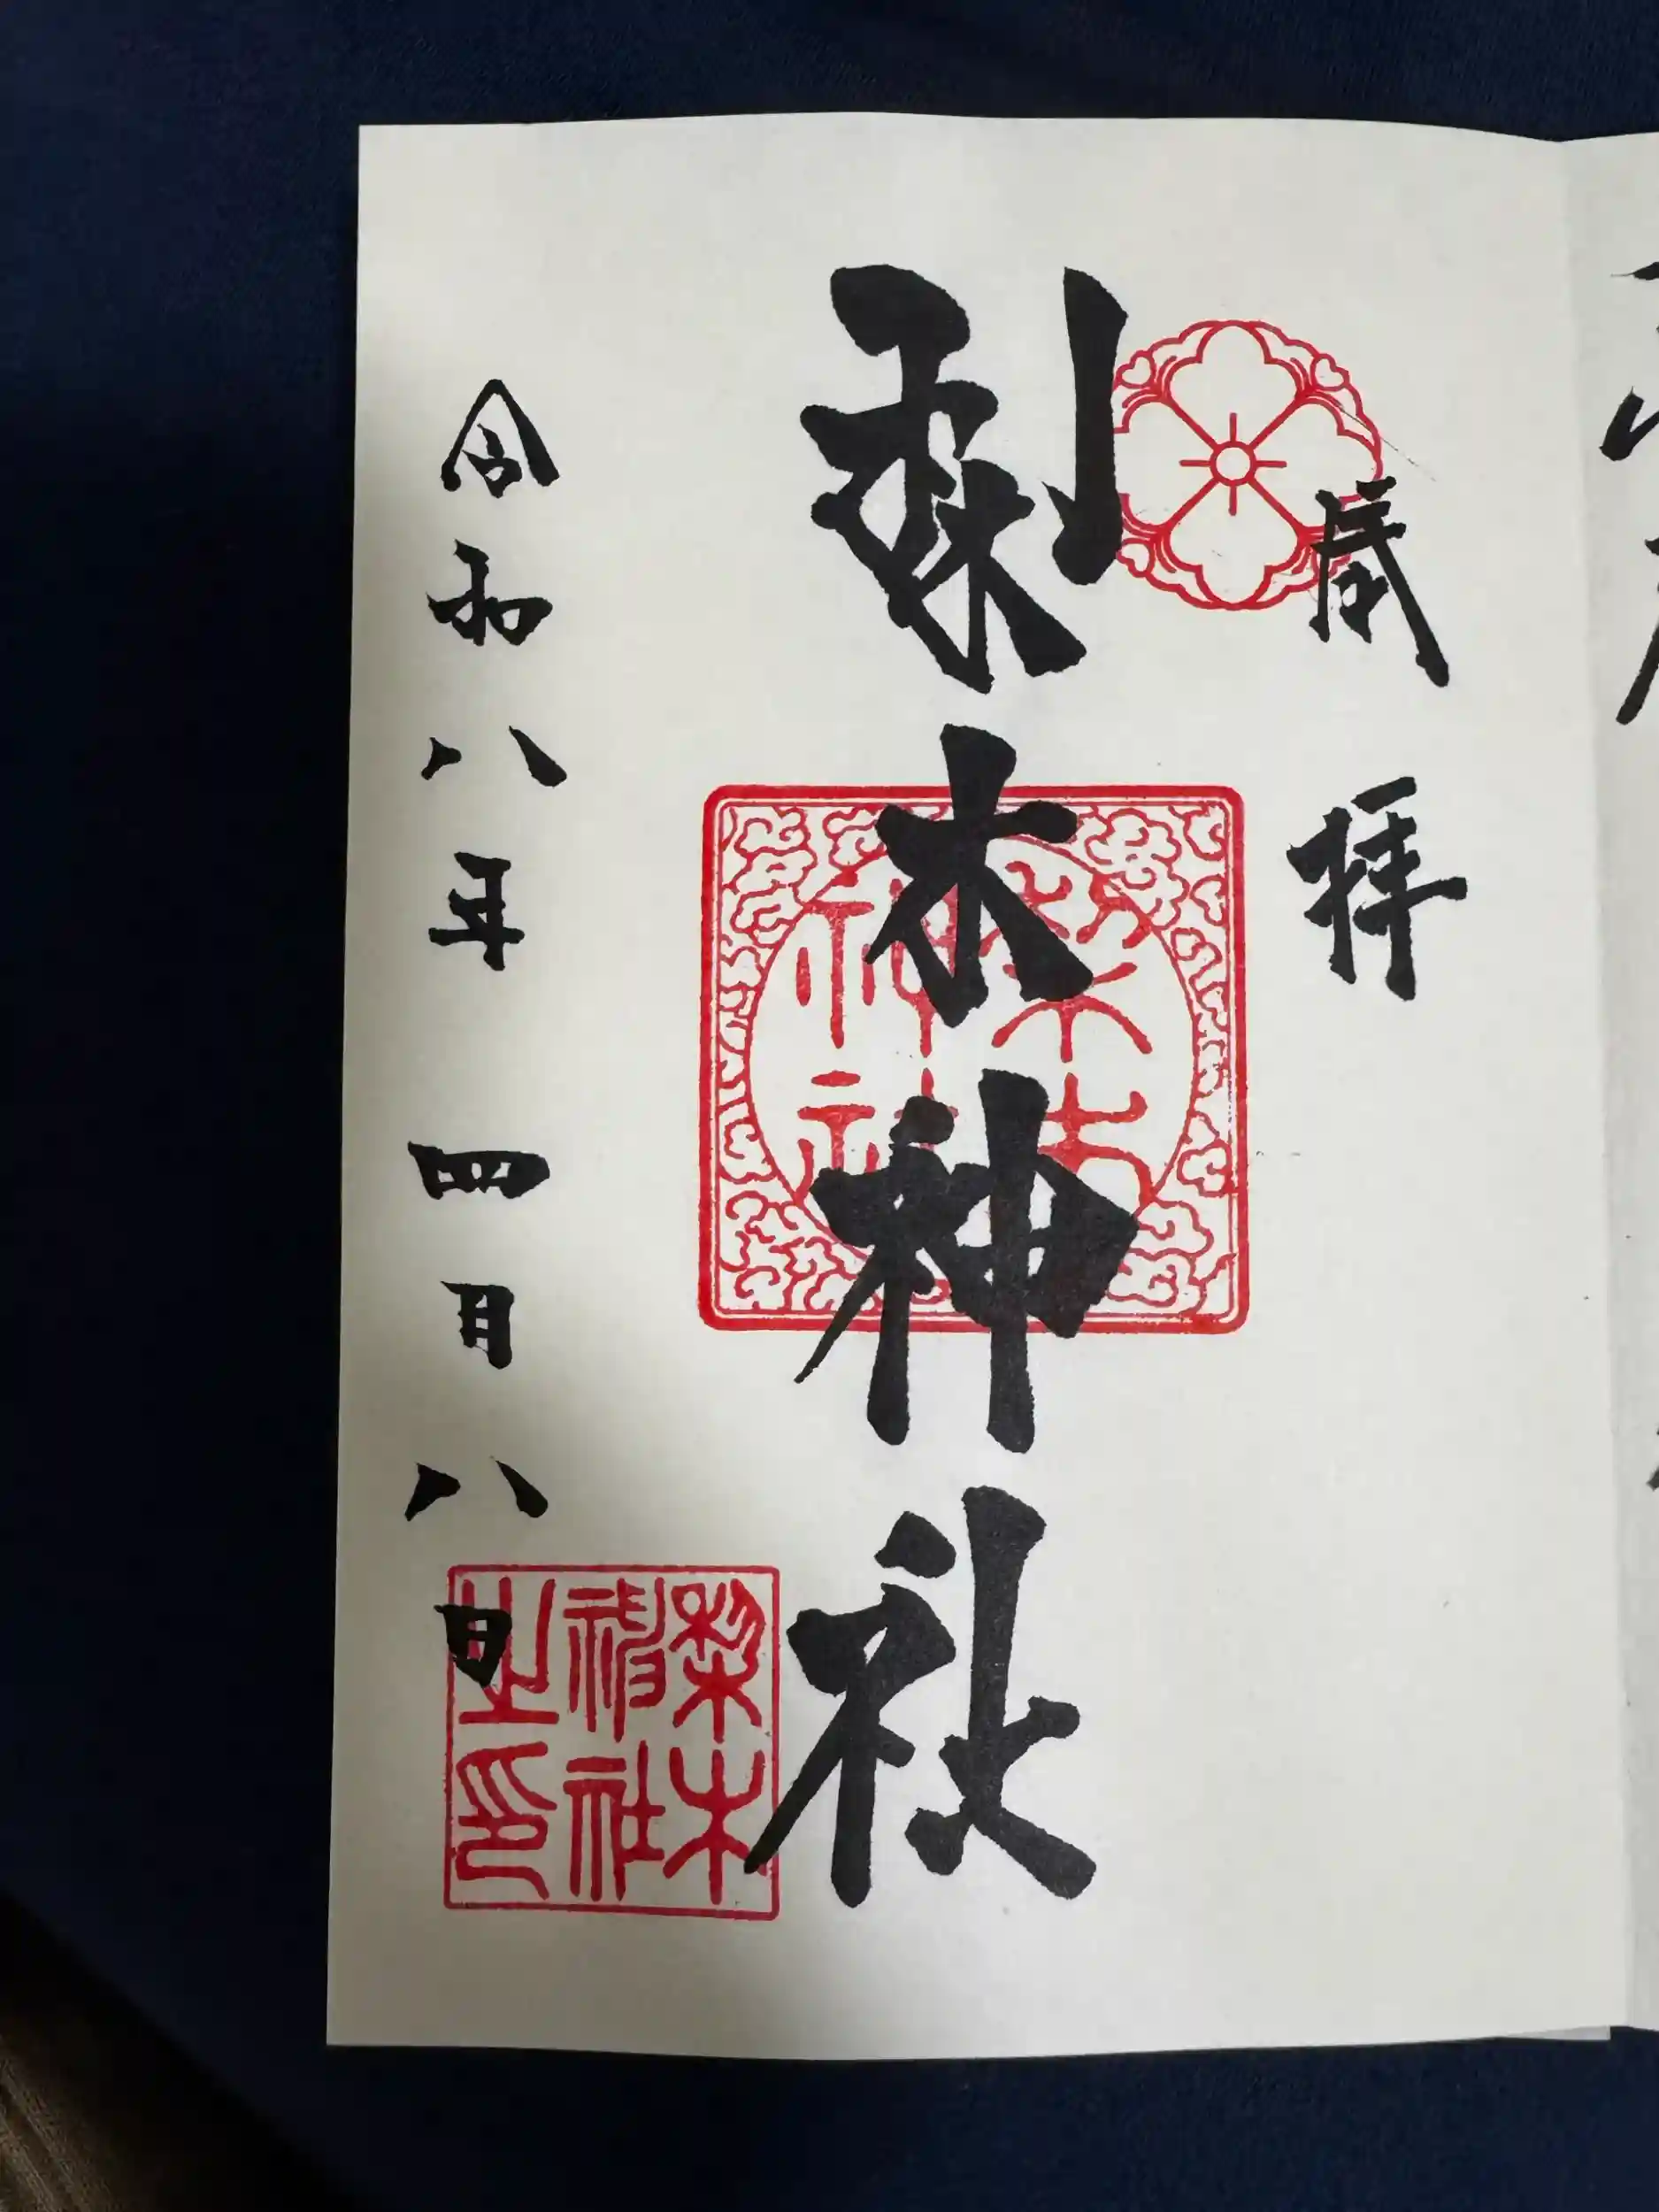 拝
梨木神社
令和八年 四月八日
梨木
神社
梨木
神社
之印